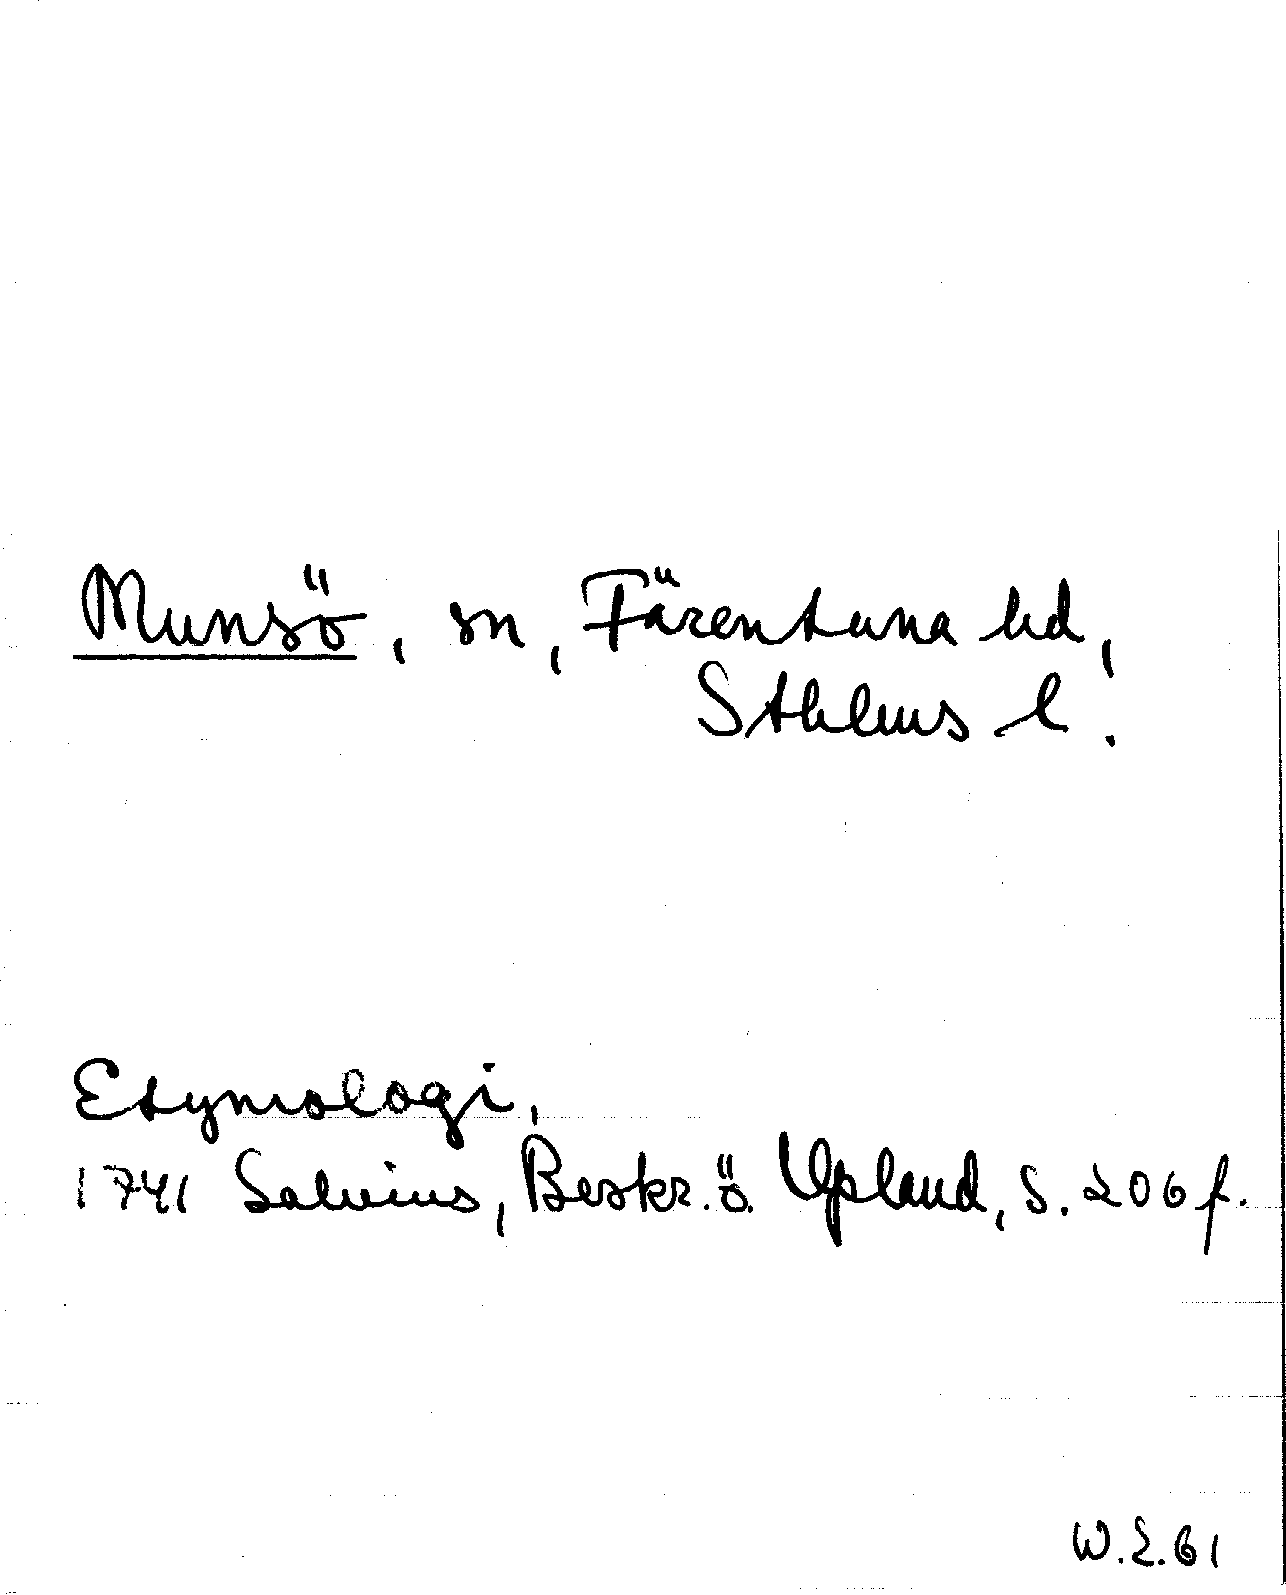 Munsö, sn, Färentuna hd,
Sthlms l.
Etymologi,
1741 Salvius, Beskr. ö. Upland, s. 206 f.
W.E.61